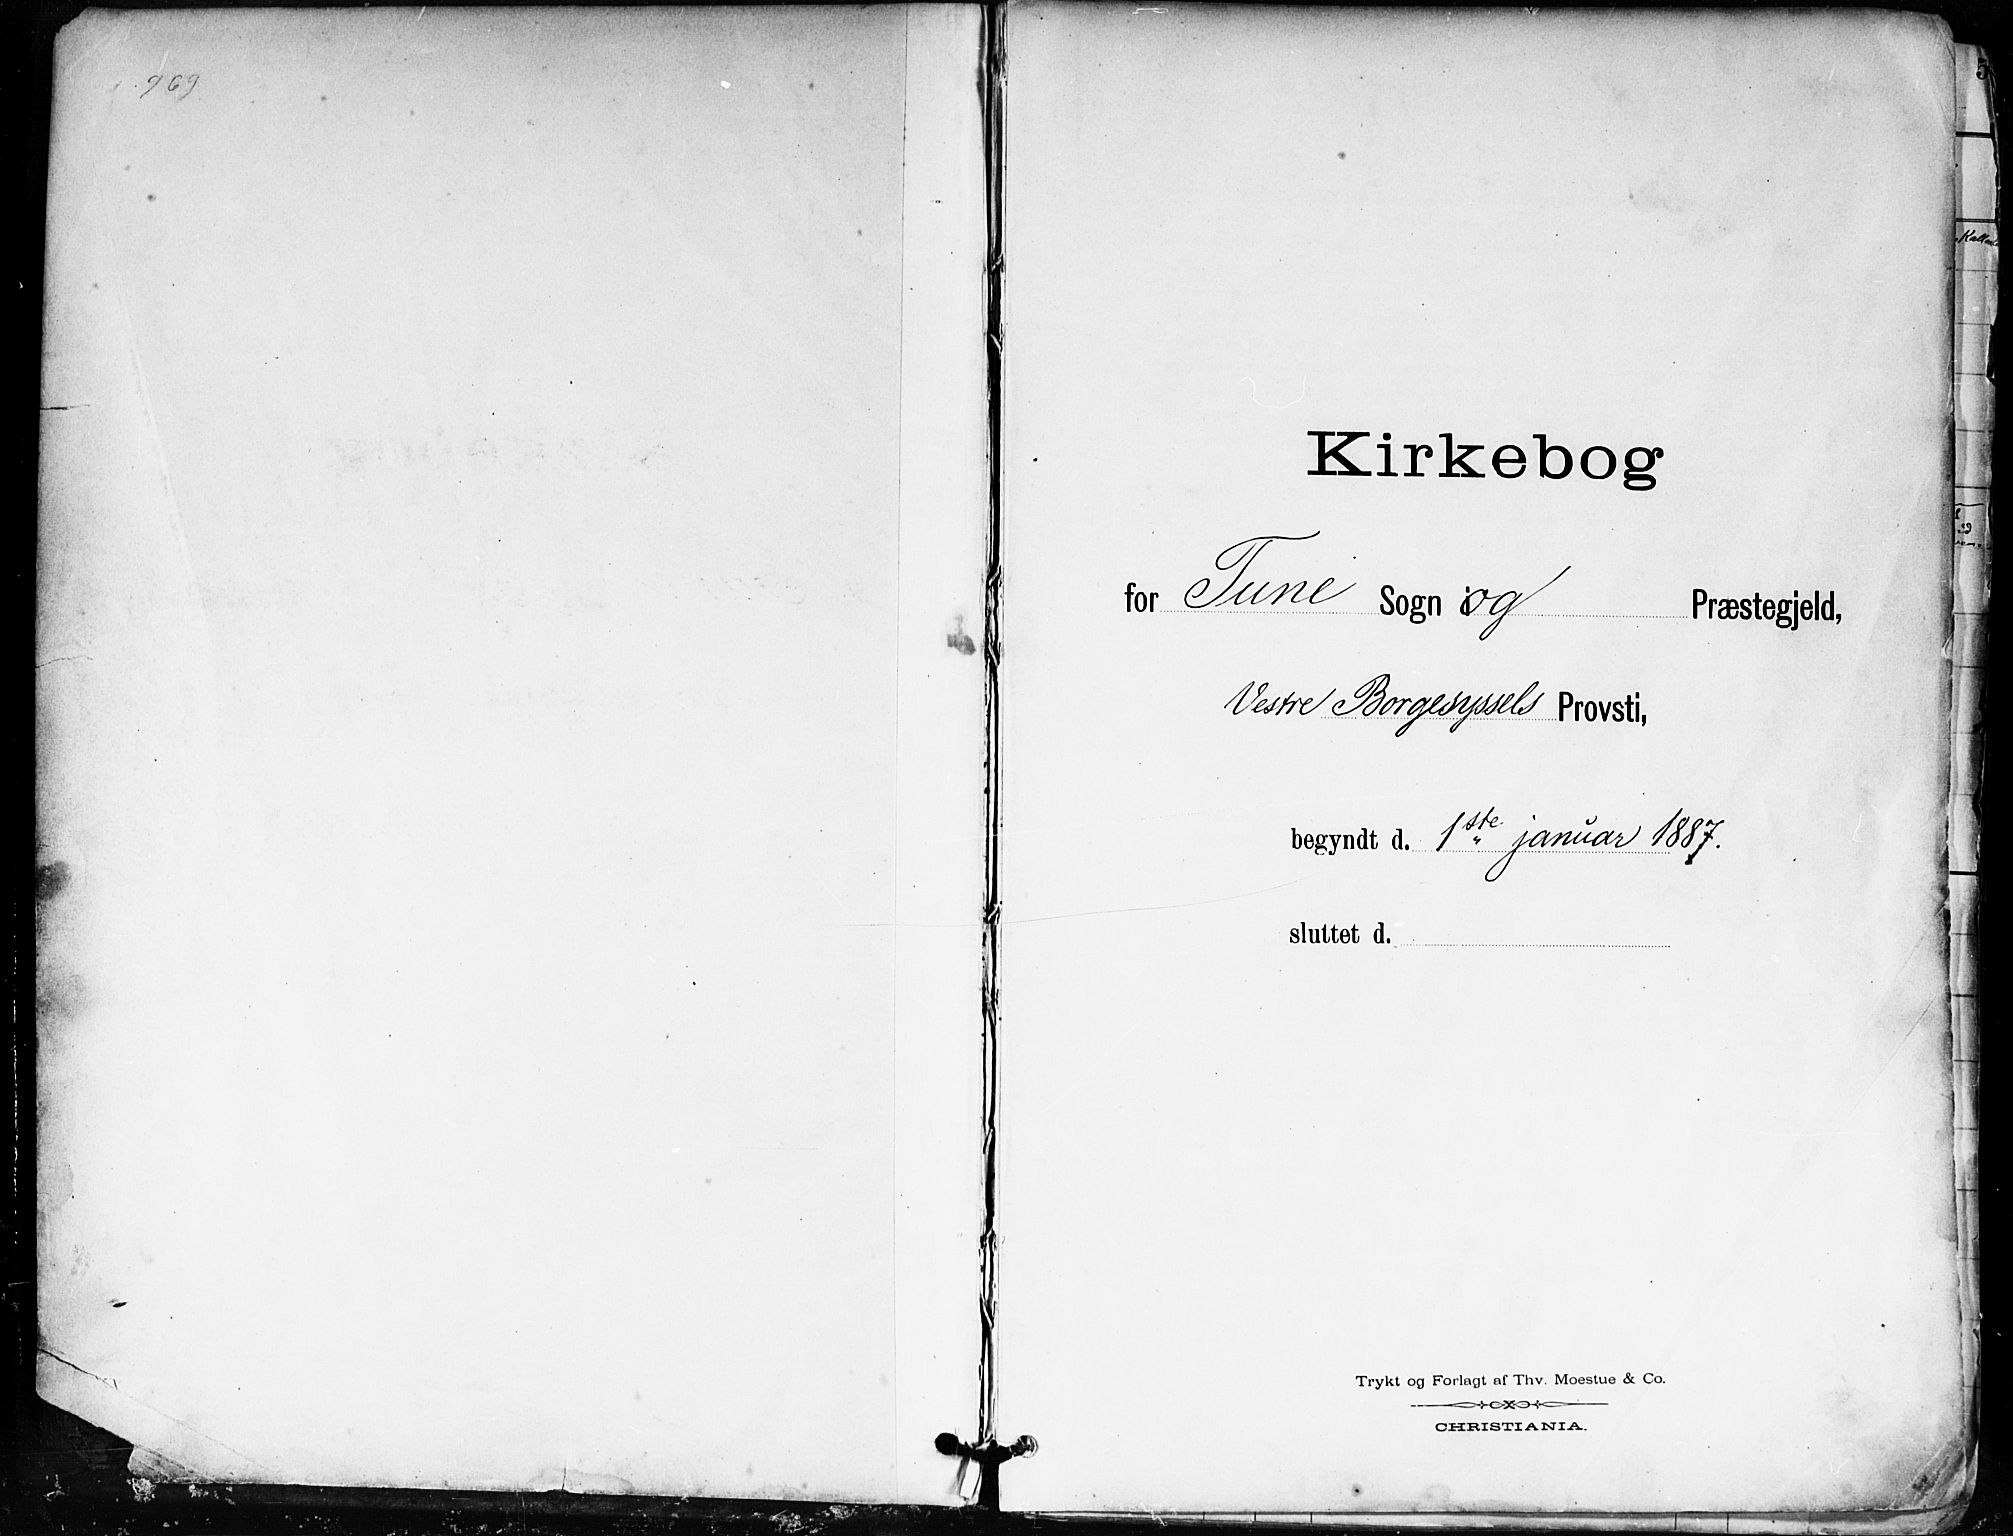 969
Kirkebog
for Tune Sogn og Præstegjeld,
Vestre Borgesyssels Provsti,
begyndt d. 1ste januar 1887.
sluttet d.
Trykt og Forlagt af Thv. Moestue & Co.
CHRISTIANIA.
5